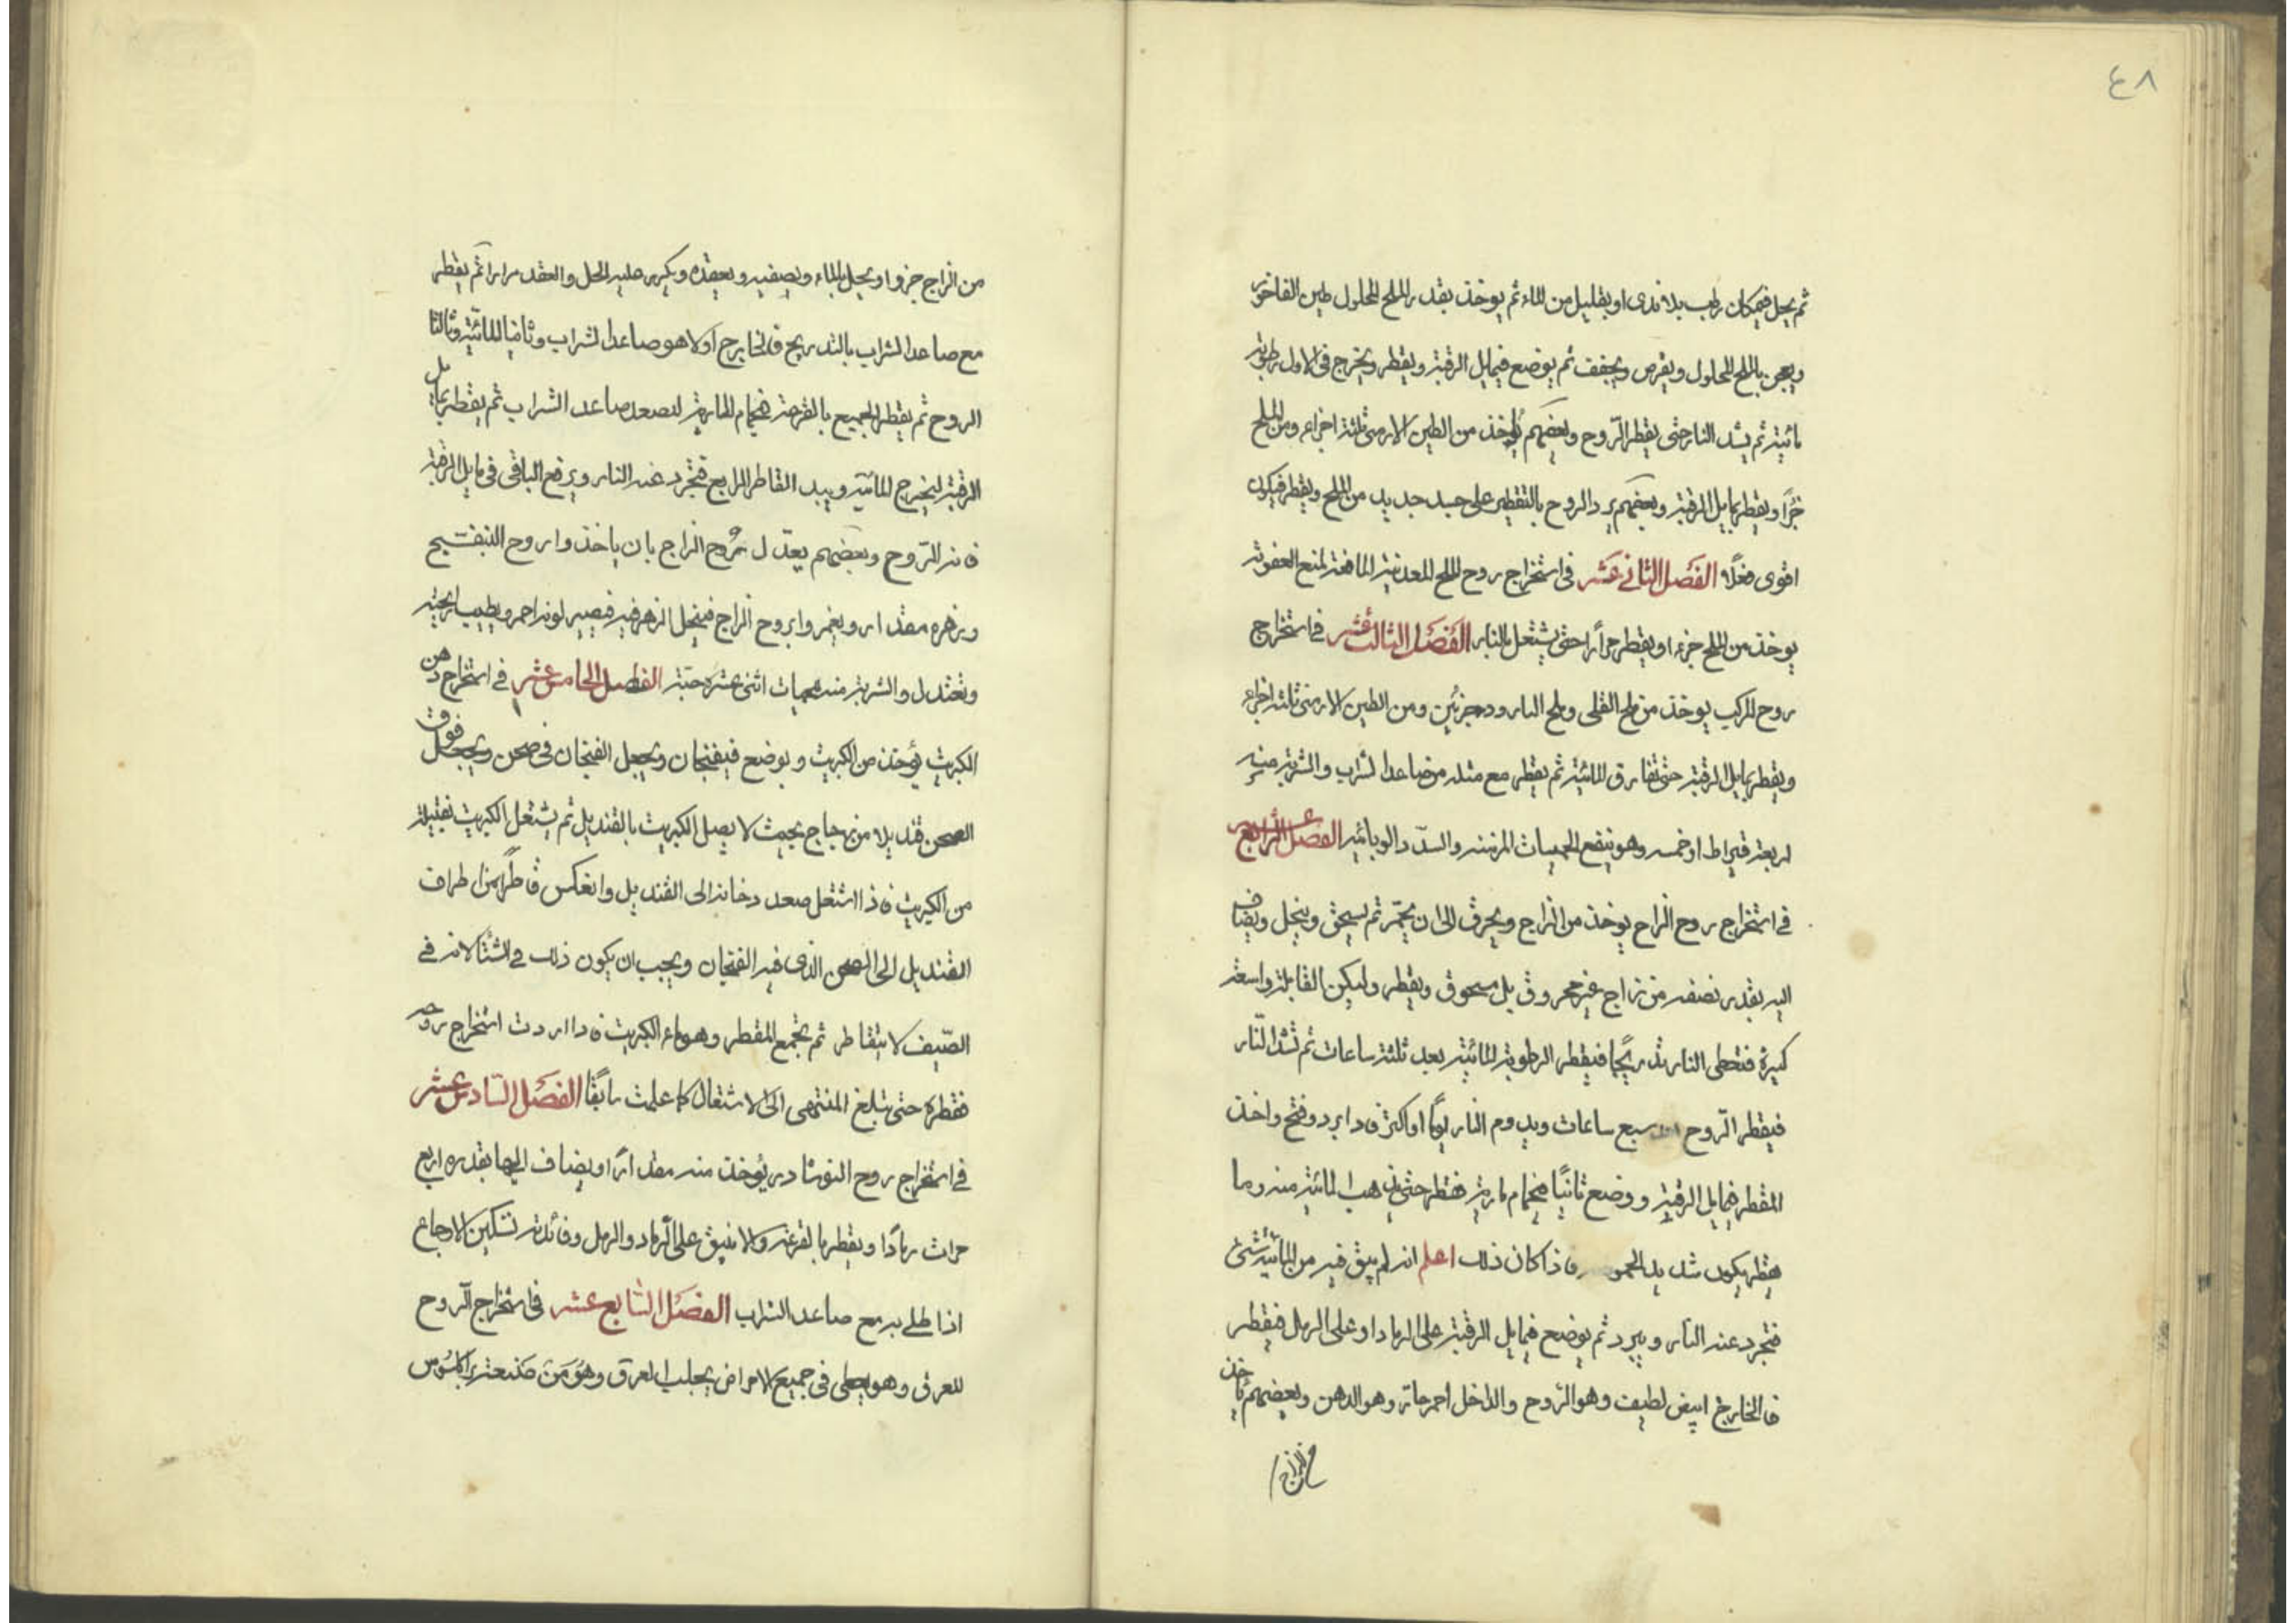 ٤٨
ثم يحل في مكان رطب بلا ندى او بقليل من الماء ثم يوخذ بقدر الملح المحلول طين الفاخورة
ويعجن بالملح المحلول ويقرص ويجفف ثم يوضع في مايل الرقبة ويقطر ويخرج في الاول رطوبة
مائية ثم يشد النار حتى يقطر الروح وبعضهم يأخذ من الطين الارمنى ثلثة اجزاء ومن الملح
جزأ ويقطر بمايل الرقبة وبعضهم يرد الروح بالتقطير على جسد جديد من الملح ويقطر فيكون
اقوى فعلا الفصل الثانى عشر فى استخراج روح الملح المعدنية المانعة لمنع العفونة
يوخذ من الملح جزء او يقطر مراراً حتى يشتعل بالنار الفصل الثالث عشر فى استخراج
روح المركب يوخذ من ملح القلى وملح البارود جزئين ومن الطين الارمنى ثلثة اجزاء
ويقطر بمايل الرقبة حتى تفارق المائية ثم يقطر مع مثله من صاعد الشراب والشربة منه
اربعة قيراط او خمسه وهو ينفع الحميات المزمنه والسدد الوبائيه الفصل الرابع عشر
فى استخراج روح الزاج يوخذ من الزاج ويحرق الى ان يحمّر ثم يسحق وينخل ويضاف
اليه بقدر نصفه من زاج غير محروق بل مسحوق ويقطر وليكن القابلة واسعة
كبيرة فتعطى النار تدريجًا فيقطر الرطوبة المائية بعد ثلثة ساعات ثم تشد النّار
فيقطر الرّوح سبع ساعات ويدوم النار يومًا او اكثر فاذا برد وفتح واخذ
المقطر فى مايل الرقبة ووضع ثانيًا فى حمام مارية فقطر حتى يذهب المائية منه وما
يقطر يكون شديد الحموضه فاذا كان ذلك اعلم انه لم يبق فيه من المائية شئ
فتجرد عنه النار ويبرد ثم يوضع فى مايل الرقبة على الرماد او على الرمل فيقطر
فالخارج ابيض لطيف وهو الروح والداخل احمر حاد وهو الدهن وبعضهم يأخذ
من الزاج
من الزاج جزوا ويحل بالماء ويصفيه ويعقده ويكرر عليه الحل والعقد مرارا ثم يقطر
مع صاعد الشراب بالتدريج فالخارج اولا هو صاعد الشراب وثانيا المائية وثالثا
الروح ثم يقطر الجميع بالقرعة فى حمام المارية لتصعد صاعد الشراب ثم يقطر بمايل
الرقبة ليخرج المائية ويبدا القاطر الرابع فتجرد عنه النار ويرفع الباقى فى مايل الرقبة
فانه الرّوح وبعضهم يعدّل روح الزاج بان ياخذوا روح البنفسج
وزهره مقدار ويغمروا بروح الزاج فينحل الزهر فيه فيصير لونه احمر ويطيب رايحته
وتعتدل والشربة منه حبات اثنى عشرة حبّة الفصل الخامس عشر فى استخراج دهن
الكبريت يؤخذ من الكبريت ويوضع فى فنجان ويجعل الفنجان فى صحن ويجعل فوق
الصحن قنديلا من زجاج بحيث لا يصل الكبريت بالقنديل ثم يشتعل الكبريت بفتيلة
من الكبريت فاذا اشتعل صعد دخانه الى القنديل وانعكس قاطرًا من اطراف
القنديل الى الصحن الذى فيه الفنجان ويجب ان يكون ذلك فى الشتا لانه فى
الصّيف لا يتقاطر ثم تجمع المقطر وهو ماء الكبريت فاذا اردت استخراج روحه
فقطره حتى تبلغ المنتهى الى الاشتعال كما علمت سابقًا الفصل السّادس عشر
فى استخراج روح النوشادر يؤخذ منه مقدارًا ويضاف اليها بقدره اربع
مرات رمادًا ويقطر بالقرعة والانبيق على الرماد والرمل وفائدته تسكين الاوجاع
اذا طلى به مع صاعد الشراب الفصل السّابع عشر فى استخراج الروح
المعرق وهو يعطى فى جميع الامراض يجلب العرق وهو من صنعة براكلسوس